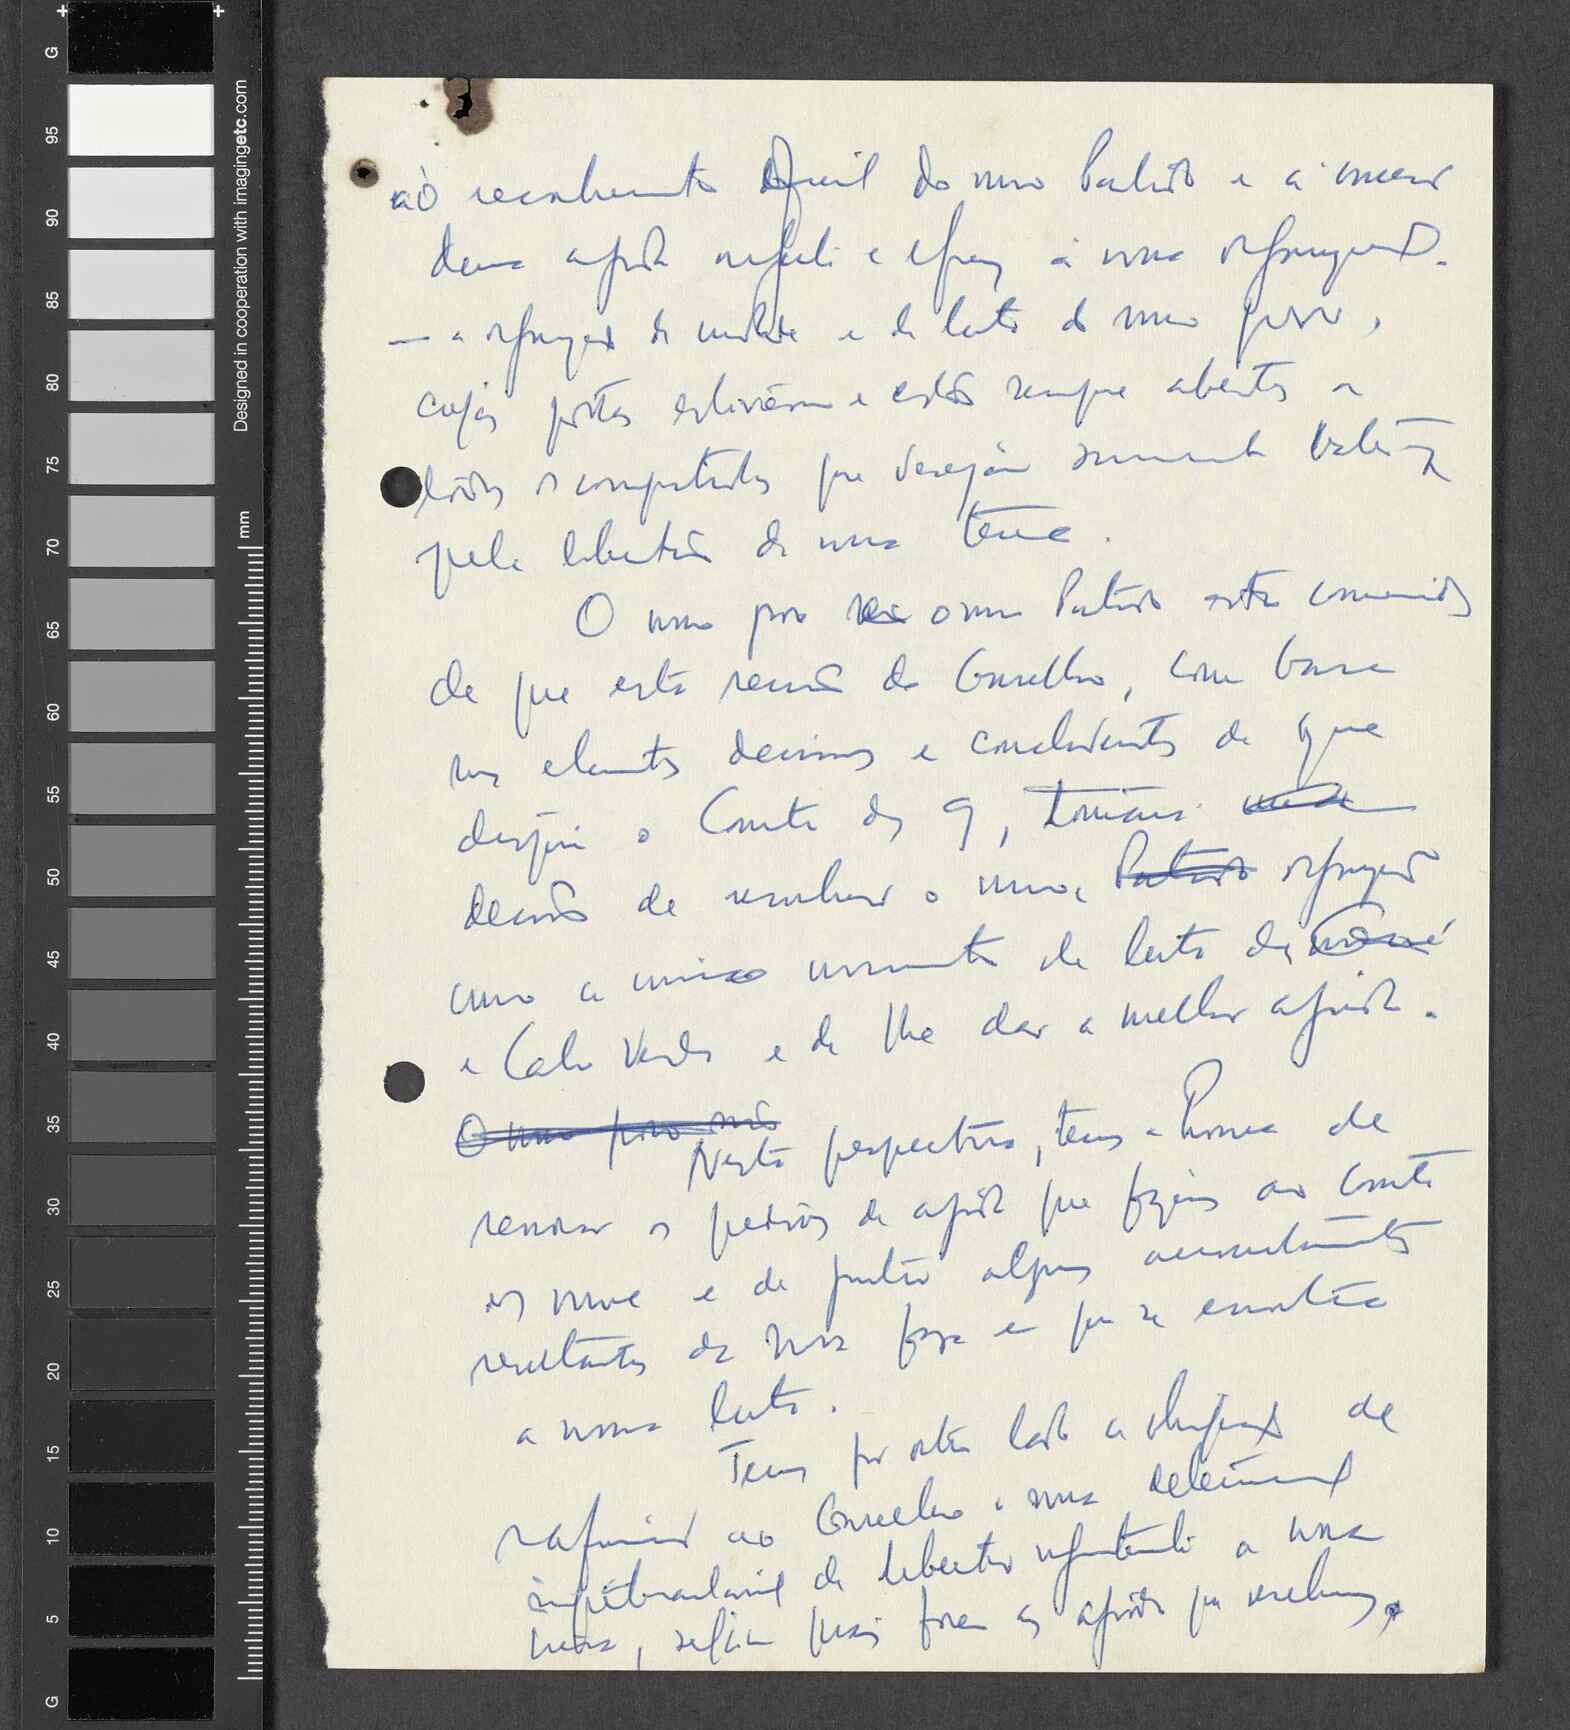 ao reconhecimento oficial do nosso Partido e à
ajuda e eficaz à nossa organização.
— a organização de unidade e de luta do nosso povo,
cujas portas estiveram e estão sempre abertas a
todos os compatriotas que desejam sinceramente
pela libertação da nossa terra.
O nosso povo o nosso Partido estão convencidos
de que esta reunião do Conselho, com base
nos elementos decisivos e concludentes de que
dispõe o Comité dos 9, tomará
decisão de reconhecer a nossa Partido organização
como o único movimento de luta da Guiné
e Cabo Verde e de lhe dar a melhor ajuda.
O nosso povo não
Nesta perspectiva, temos a honra de
renovar os pedidos de ajuda que fizemos ao Comité
dos nove e de juntar alguns
resultantes da nova fase em que se encontra
a nossa luta.
Temos por outro lado a obrigação de
reafirmar ao Conselho a nossa determinação
inquebrantável de libertar a nossa
terra, sejam quais forem as ajudas que recebemos,
G 95 90 85 80 75 70 65 60 55 50 45 40 35 30 25 20 15 10 5 G
mm
Designed in cooperation with imagingetc.com